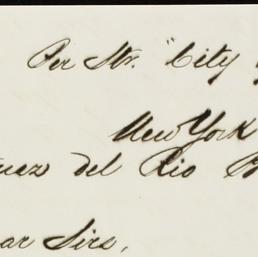 Per Str. "City
New York
uaz del Rio
ar Sirs,